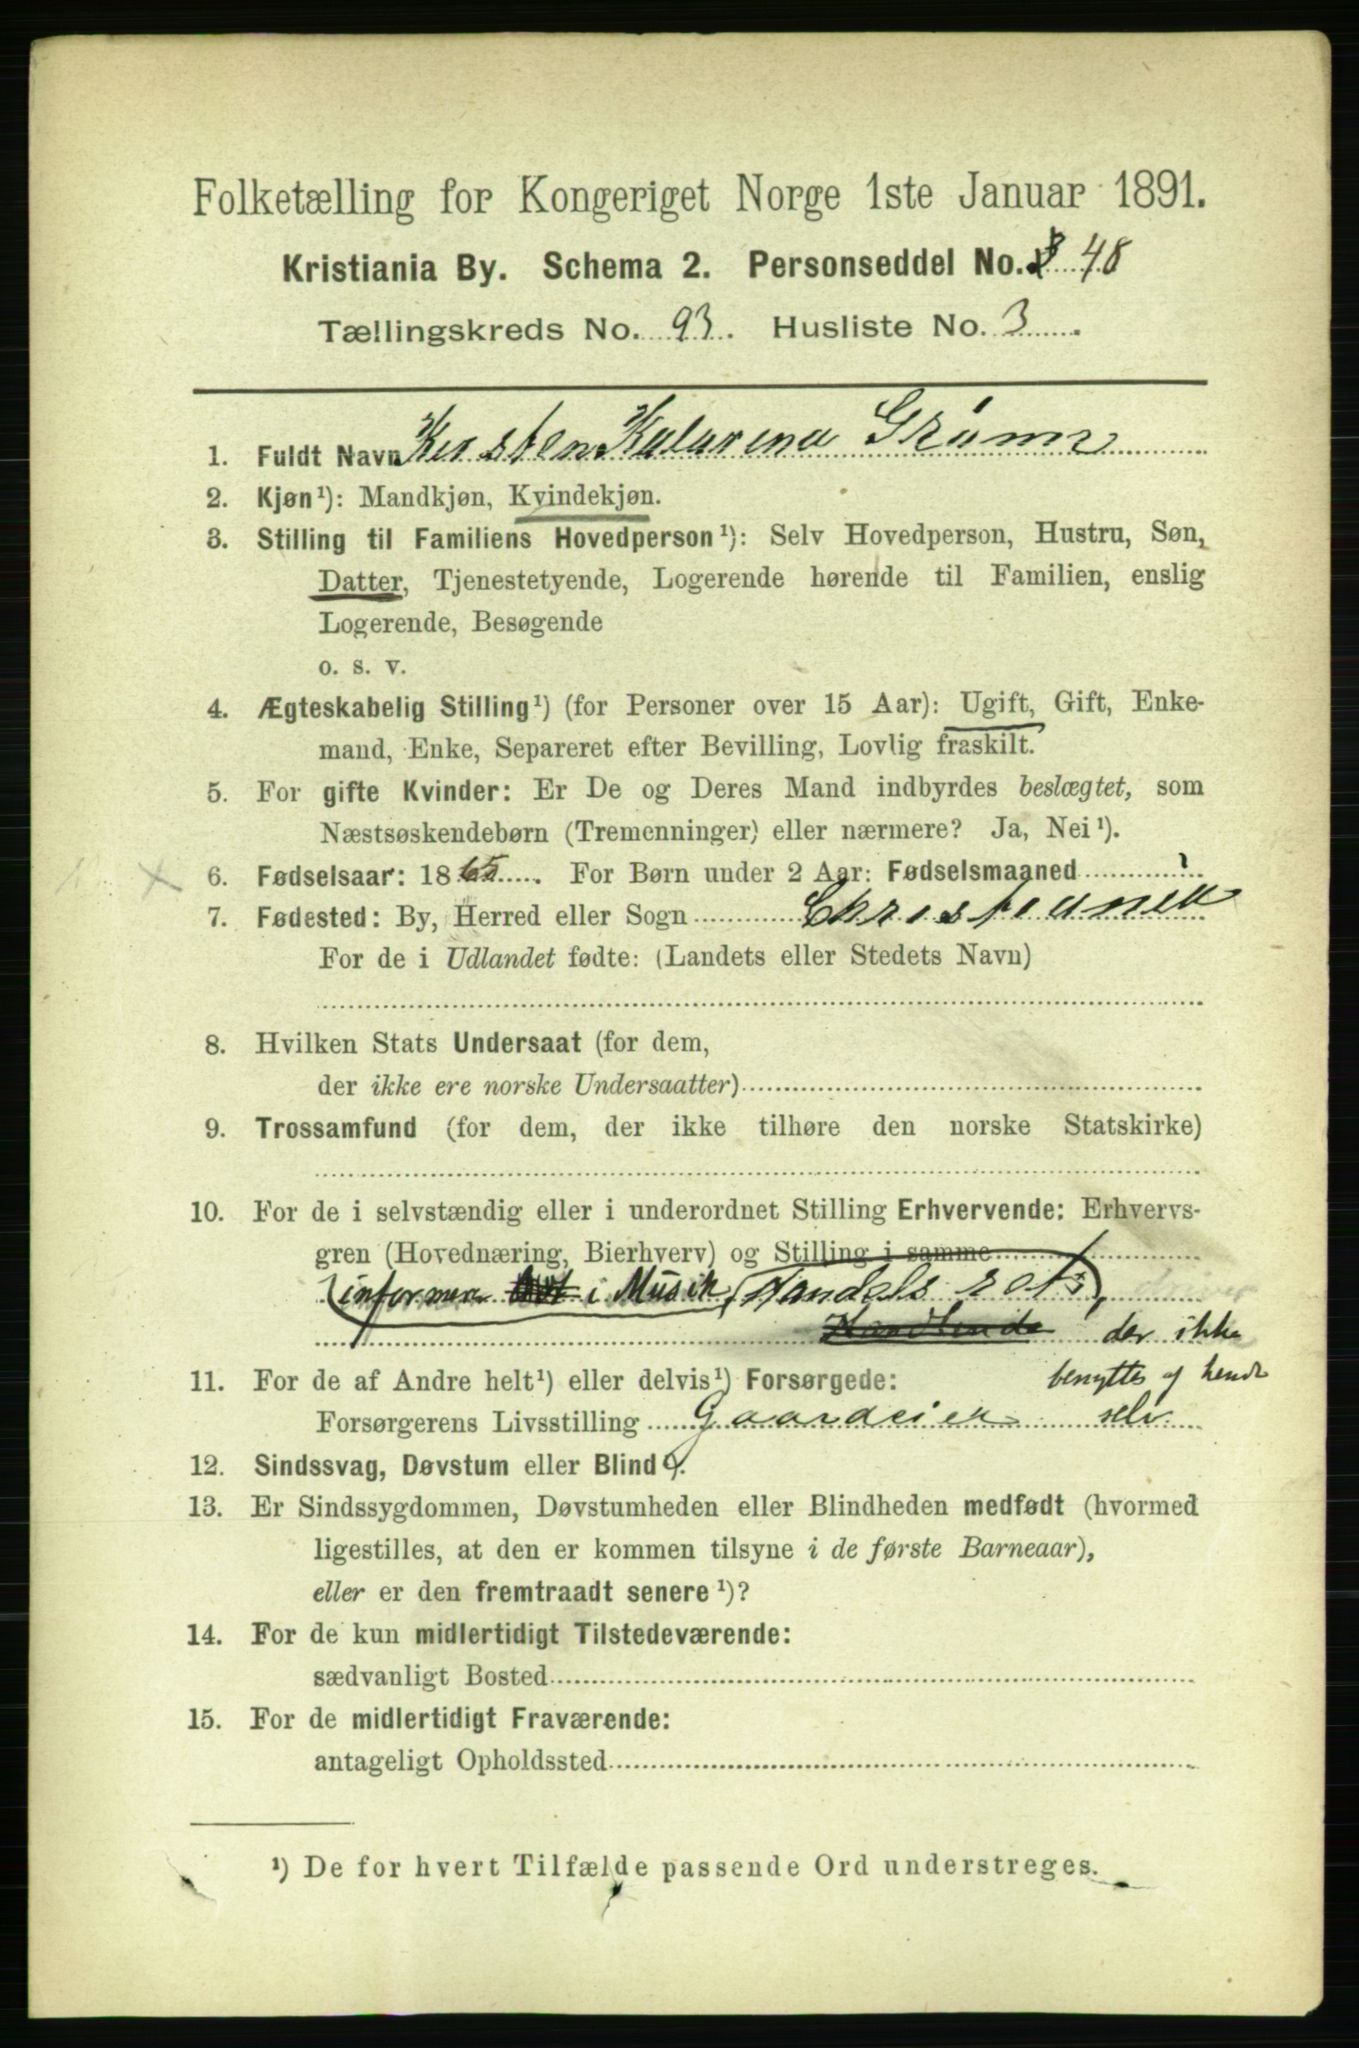 Folketælling for Kongeriget Norge 1ste Januar 1891.
Kristiania By. Schema 2. Personseddel No. 48
Tællingskreds No. 93. Husliste No. 3.
1. Fuldt Navn Kirsten Katarena Grønn
2. Kjøn¹): Mandkjøn, Kvindekjøn.
3. Stilling til Familiens Hovedperson¹): Selv Hovedperson, Hustru, Søn,
Datter, Tjenestetyende, Logerende hørende til Familien, enslig
Logerende, Besøgende
o. s. v.
4. Ægteskabelig Stilling¹) (for Personer over 15 Aar): Ugift, Gift, Enke-
mand, Enke, Separeret efter Bevilling, Lovlig fraskilt.
5. For gifte Kvinder: Er De og Deres Mand indbyrdes beslægtet, som
Næstsøskendebørn (Tremenninger) eller nærmere? Ja, Nei¹).
6. Fødselsaar: 1865. For Børn under 2 Aar: Fødselsmaaned
7. Fødested: By, Herred eller Sogn Christiania
For de i Udlandet fødte: (Landets eller Stedets Navn)
8. Hvilken Stats Undersaat (for dem,
der ikke ere norske Undersaatter)
9. Trossamfund (for dem, der ikke tilhøre den norske Statskirke)
10. For de i selvstændig eller i underordnet Stilling Erhvervende: Erhvervs-
gren (Hovednæring, Bierhverv) og Stilling i samme
i Musik, Handels ret,
der ikke
11. For de af Andre helt¹) eller delvis¹) Forsørgede: benyttes af hende
Forsørgerens Livsstilling Gaardeier selv.
12. Sindssvag, Døvstum eller Blind¹).
13. Er Sindssygdommen, Døvstumheden eller Blindheden medfødt (hvormed
ligestilles, at den er kommen tilsyne i de første Barneaar),
eller er den fremtraadt senere¹)?
14. For de kun midlertidigt Tilstedeværende:
sædvanligt Bosted
15. For de midlertidigt Fraværende:
antageligt Opholdssted
¹) De for hvert Tilfælde passende Ord understreges.